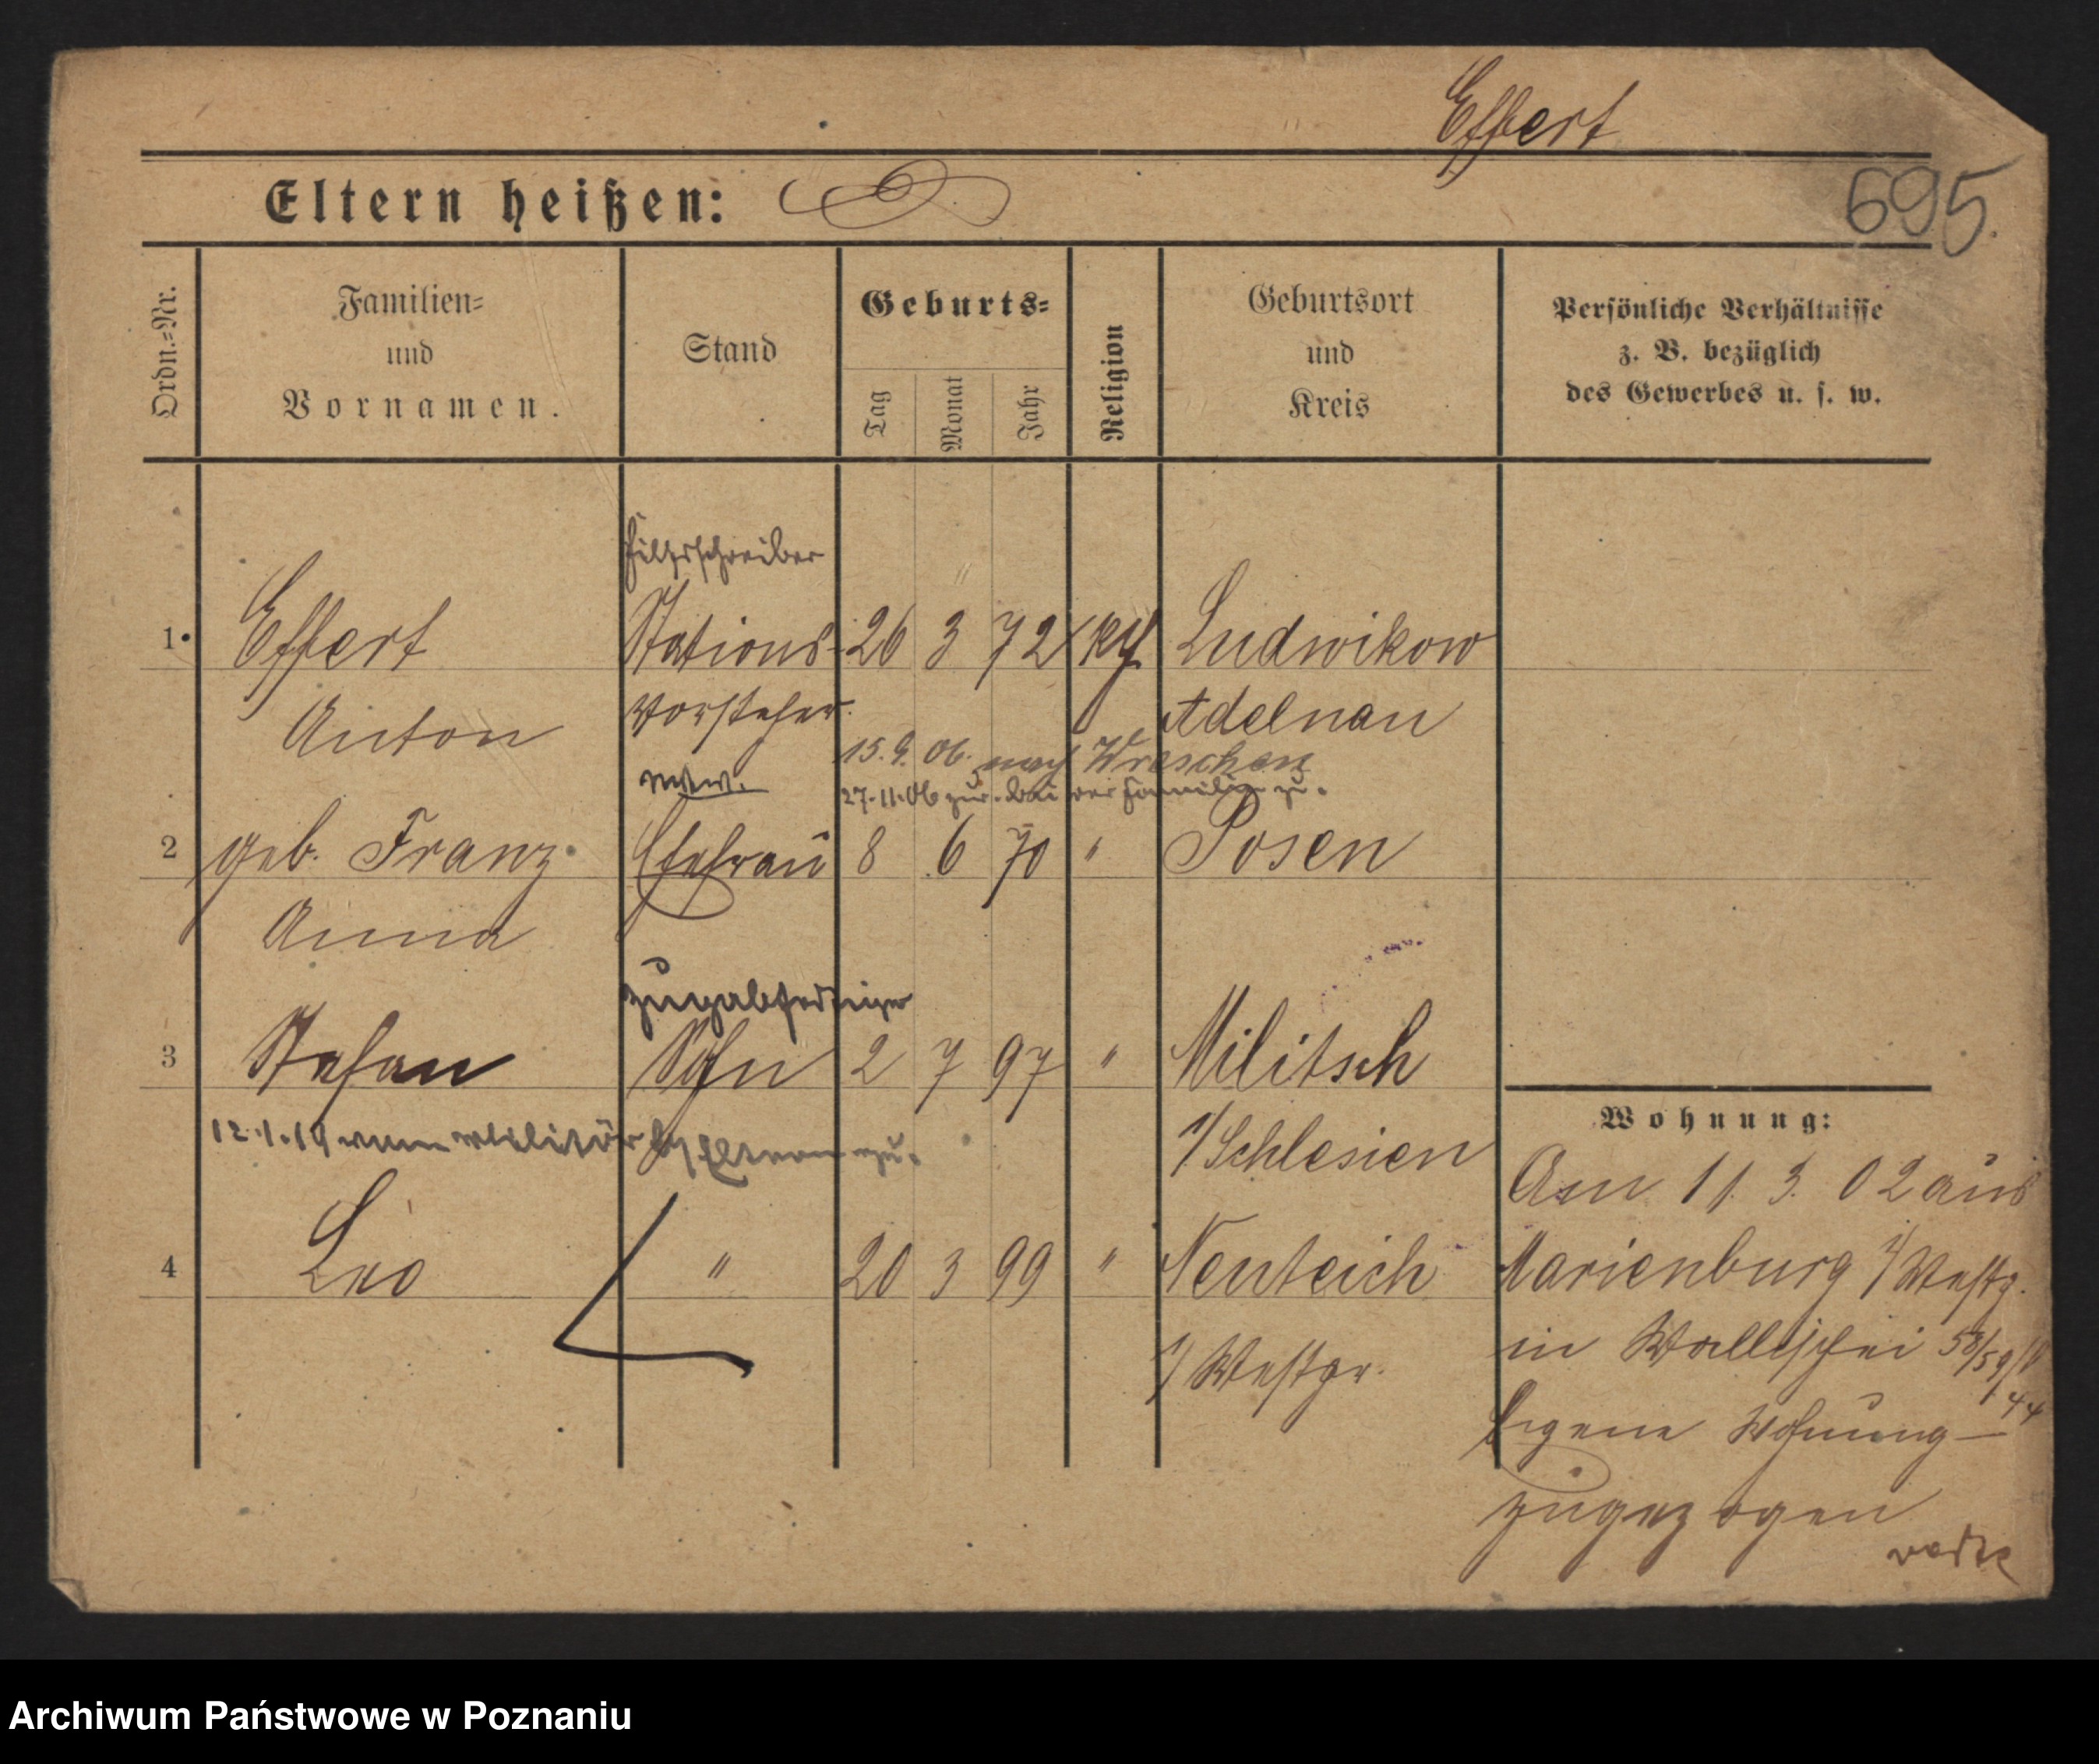 Effert
Eltern heißen:
695.
Ordn.=Nr.
Familien=
und
Vornamen.
Stand
Geburts=
Tag
Monat
Jahr
Religion
Geburtsort
und
Kreis
Persönliche Verhältnisse
z. B. bezüglich
des Gewerbes u. s. w.
Hilfsschreiber
1. Effert Stations- 26 3 72 Ludwikow
Anton Vorsteher. Adelnau
15. 9. 06. nach Wreschen
Wwe.
27.11.06 zur. bei der Familie zu.
2 geb. Franz Ehefrau 8 6 70 " Posen
Anna
Zugabfertiger
3 Stefan Sohn 2 7 97 " Militsch
i/Schlesien
12.1.19 vom Militär Eltern zu.
4 Leo " 20 3 99 " Neuteich
i/Westpr.
Wohnung:
Am 11. 3. 02 aus
Marienburg i/Westp.
in Wallischei 58/59
44
Eigene Wohnung —
zugezogen